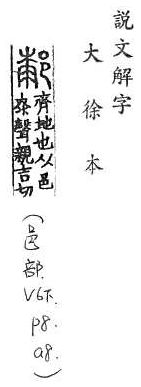 説文解字
大徐本
𨞓 齊地也从邑
桼聲親吉切
(邑部.V6下.p8.a8.)